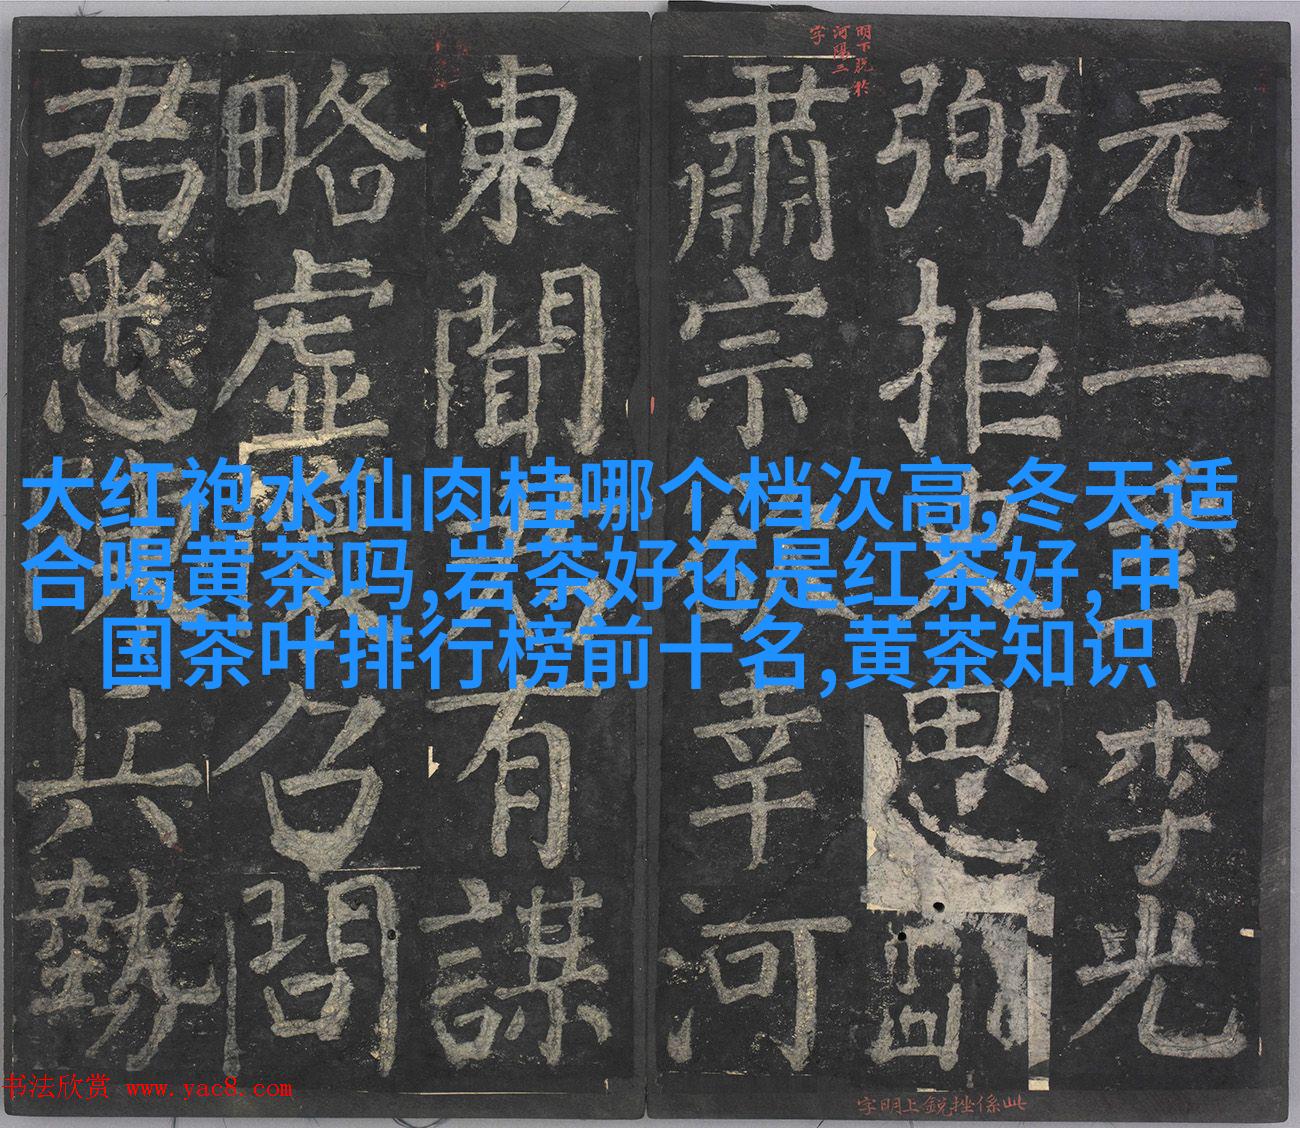 大红袍水仙肉桂哪个档次高,冬天适
合喝黄茶吗,岩茶好还是红茶好,中
国茶叶排行榜前十名,黄茶知识
明下脱於
河陽三
字
元二年李光
弼拒史思
肅宗幸河
東聞有謀
略虛召問
君悉陳兵勢
此係挫銳上明字
书法欣赏 www.yac8.com